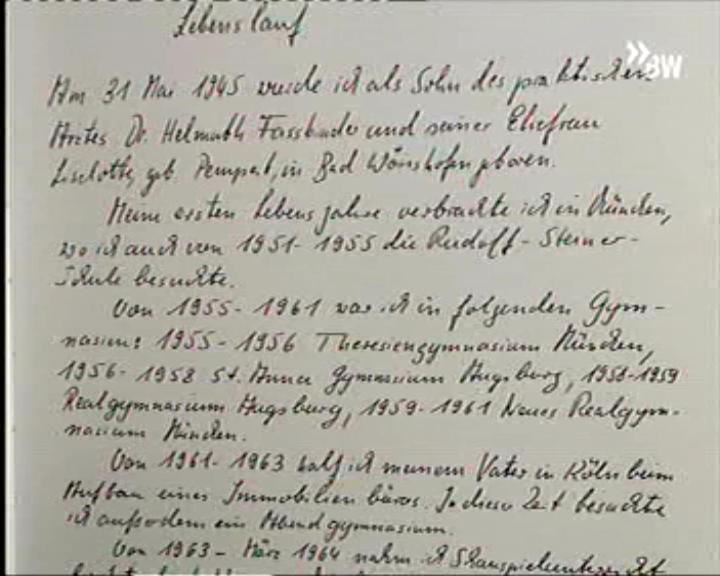 Lebenslauf
»BW
Am 31 Mai 1945 wurde ich als Sohn des praktischen
Arztes Dr. Helmuth Fassbinder und seiner Ehefrau
Liselotte, geb. Pempeit, in Bad Wörishofen geboren.
Meine ersten Lebensjahre verbrachte ich in München,
wo ich auch von 1951-1955 die Rudolf-Steiner-
Schule besuchte.
Von 1955-1961 war ich in folgenden Gym-
nasien: 1955-1956 Theresiengymnasium München,
1956-1958 St. Anna Gymnasium Augsburg, 1958-1959
Realgymnasium Augsburg, 1959-1961 Neues Realgym-
nasium München.
Von 1961-1963 half ich meinem Vater in Köln beim
Aufbau eines Immobilienbüros. In dieser Zeit besuchte
ich außerdem ein Abendgymnasium.
Von 1963 - März 1964 nahm ich Schauspielunterricht